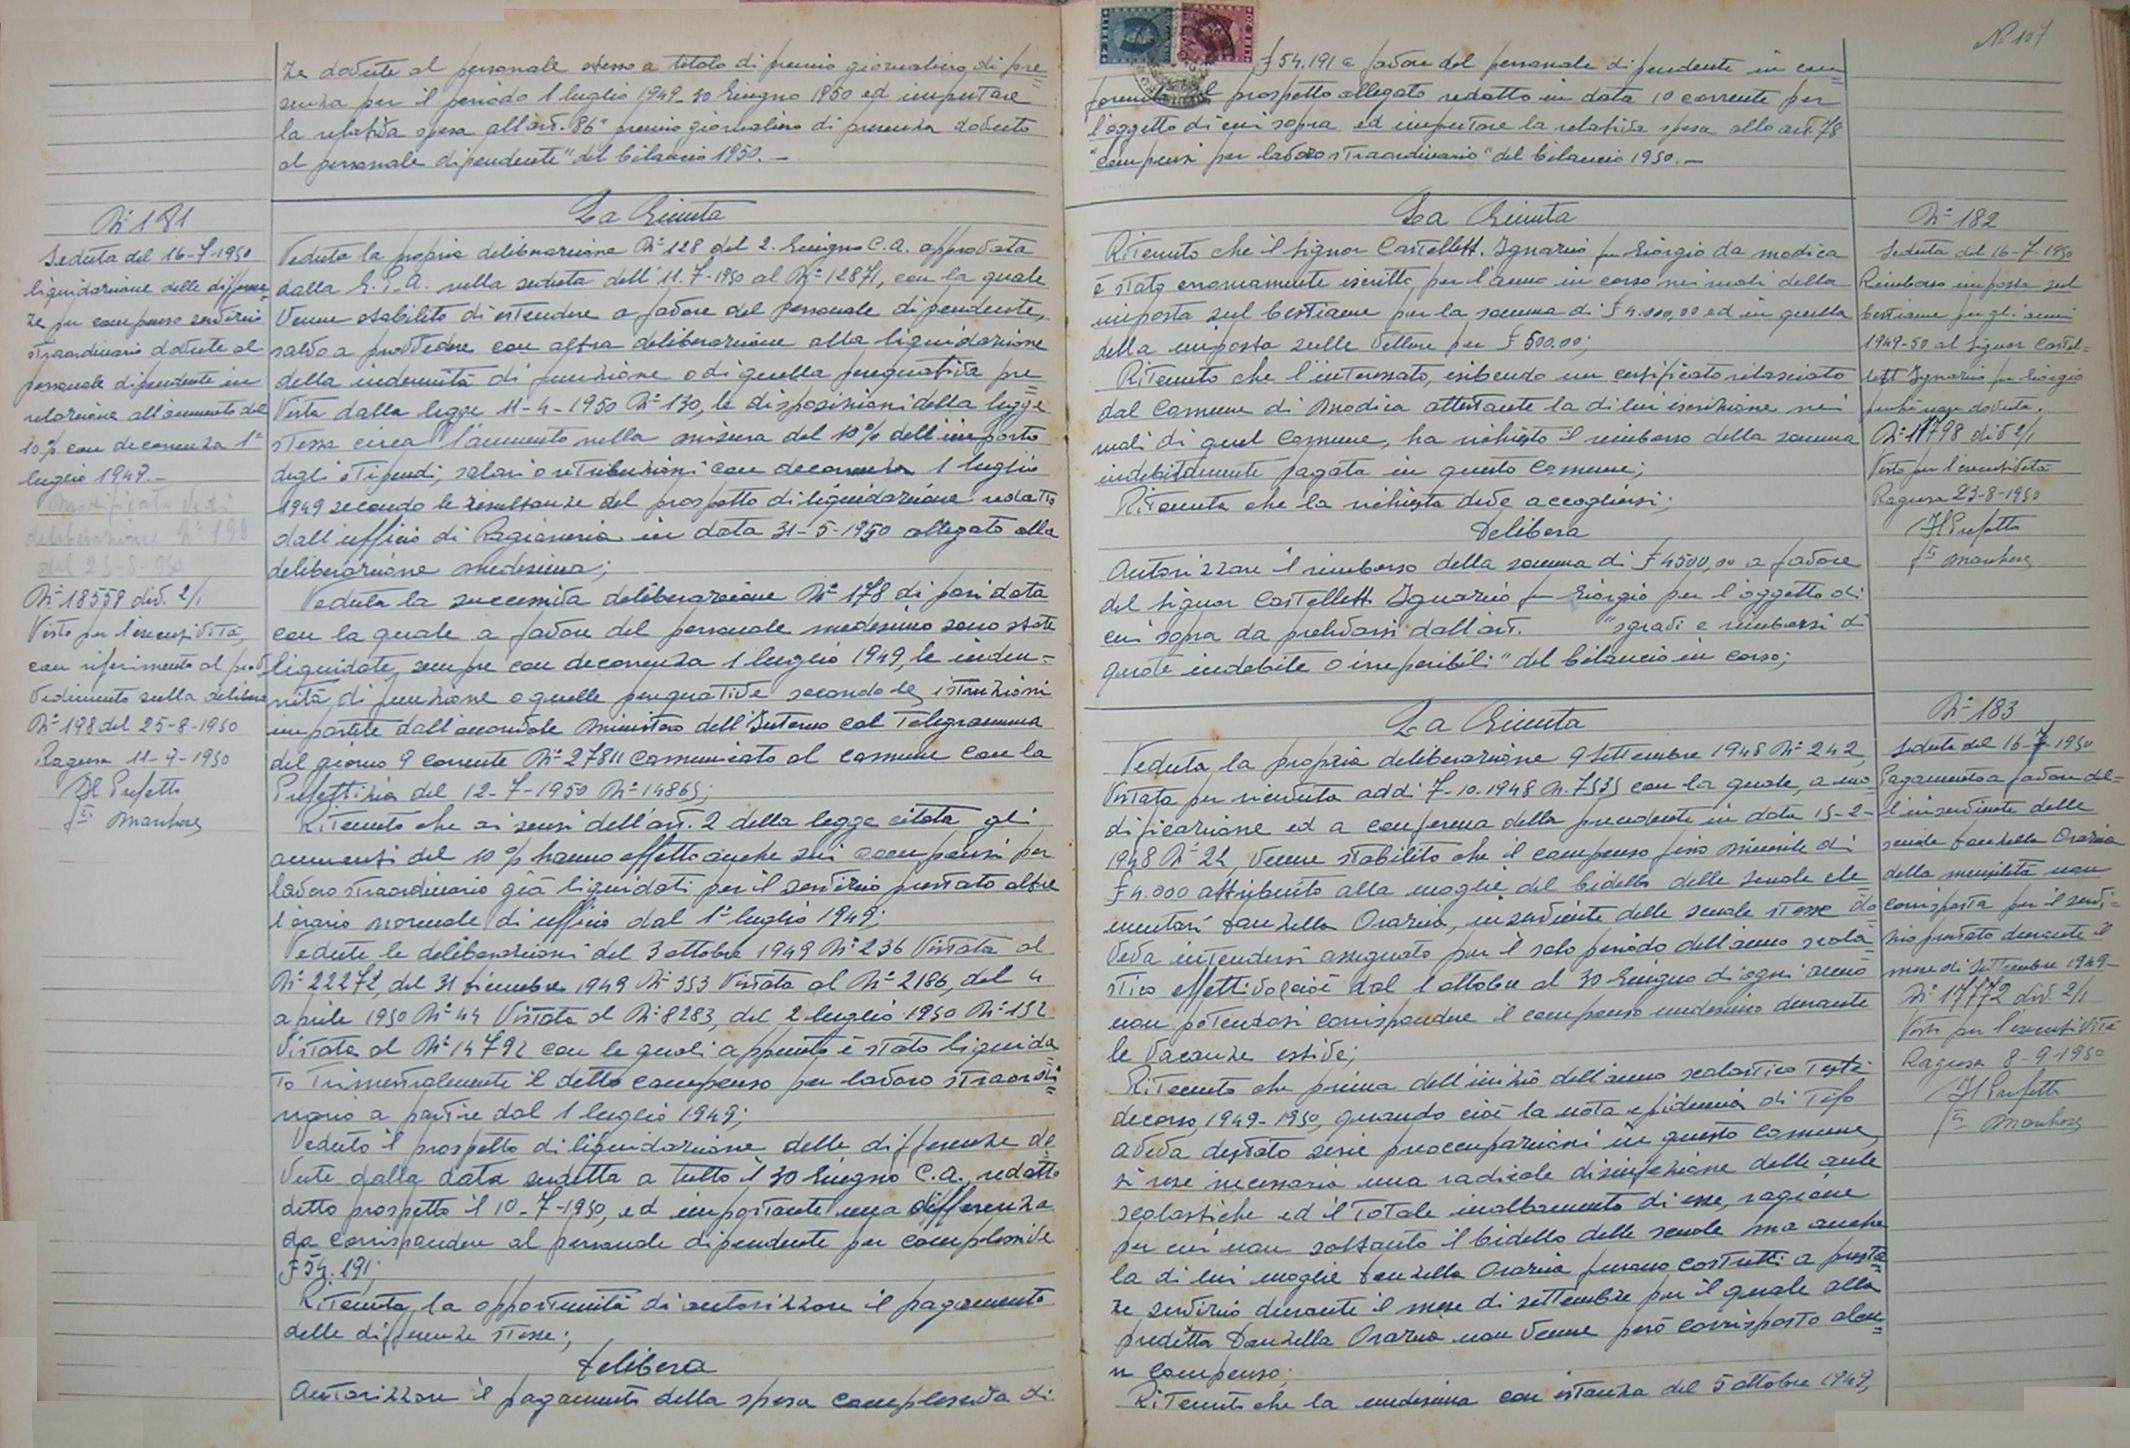 ze dovute al personale stesso a titolo di premio giornaliero di pre=
senza per il periodo 1 luglio 1949-30 Giugno 1950 ed imputare
la relativa spesa all'art. 86 "premio giornaliero di presenza dovuto
al personale dipendente" del bilancio 1950.-
N° 181
Seduta del 16-7-1950
liquidazione delle differen=
ze per compenso servizio
straordinario dovute al
personale dipendente in
relazione all'aumento del
10% con decorrenza 1°
luglio 1949.-
Modificata Vedi
deliberazione N° 198
del 25-8-950
N° 18558 div. 2/1
Visto per l'esecutività,
con riferimento al prov
vedimento sulla delibera
N° 198 del 25-8-1950
Ragusa 11-9-1950
Il Prefetto
La Giunta
Veduta la propria deliberazione N° 128 del 2 Giugno C.A. approvata
dalla G.P.A. nella seduta dell'11-7-1950 al N° 12871, con la quale
venne stabilito di estendere a favore del personale dipendente,
salvo a provvedere con altra deliberazione alla liquidazione
della indennità di funzione o di quella perequativa pre=
vista dalla legge 11-4-1950 N° 130, le disposizioni della legge
stessa circa l'aumento nella misura del 10% dell'importo
degli stipendi, salari o retribuzioni con decorrenza 1 luglio
1949 secondo le risultanze del prospetto di liquidazione redatto
dall'ufficio di Ragioneria in data 31-5-1950 allegato alla
deliberazione medesima;
Veduta la successiva deliberazione N° 178 di pari data
con la quale a favore del personale medesimo sono state
liquidate, sempre con decorrenza 1 luglio 1949, le inden=
nità di funzione o quelle perequative secondo le istruzioni
impartite dall'onorevole Ministero dell'Interno col telegramma
del giorno 9 corrente N° 27811 comunicato al comune con la
Prefettizia del 12-7-1950 N° 14865;
Ritenuto che ai sensi dell'art. 2 della legge citata gli
aumenti del 10% hanno effetto anche sui compensi per
lavoro straordinario già liquidati per il servizio prestato oltre
l'orario normale di ufficio dal 1° luglio 1949;
Vedute le deliberazioni del 3 ottobre 1949 N° 236 Vistata al
N° 22272, del 31 dicembre 1949 N° 353 Vistata al N° 2186, del 4
aprile 1950 N° 44 Vistata al N° 8283, del 2 luglio 1950 N° 152
Vistata al N° 14792 con le quali appunto è stato liquida
to trimestralmente il detto compenso per lavoro straordi
nario a partire dal 1 luglio 1949;
Veduto il prospetto di liquidazione delle differenze do
vute dalla data suddetta a tutto il 30 Giugno C.A., redatto
detto prospetto il 10-7-1950, ed importante una differenza
da corrispondere al personale dipendente per complessive
£ 54.191;
Ritenuta la opportunità di autorizzare il pagamento
delle differenze stesse;
Delibera
Autorizzare il pagamento della spesa complessiva di
N° 107
£ 54.191 a favore del personale dipendente in con=
formità al prospetto allegato redatto in data 10 corrente per
l'oggetto di cui sopra ed imputare la relativa spesa allo art. 78
"compensi per lavoro straordinario" del bilancio 1950.-
La Giunta
Ritenuto che il Signor Castellett Ignazio fu Giorgio da Modica
è stato erroneamente iscritto, per l'anno in corso nei ruoli della
imposta sul bestiame per la somma di £ 4.000,00 ed in quella
della imposta sulle vetture per £ 500.00;
Ritenuto che l'interessato, esibendo un certificato rilasciato
dal Comune di Modica attestante la di lui iscrizione nei
ruoli di quel Comune, ha richiesto il rimborso della somma
indebitamente pagata in questo Comune;
Ritenuta che la richiesta deve accogliersi;
Delibera
Autorizzare il rimborso della somma di £ 4500,00 a favore
del Signor Castellett Ignazio fu Giorgio per l'oggetto di
cui sopra da prelevarsi dall'art. "sgravi e rimborsi di
quote indebite o inesigibili" del bilancio in corso;
N° 182
Seduta del 16-7-1950
Rimborso imposta sul
bestiame per gli anni
1949-50 al Signor Castel=
lett Ignazio fu Giorgio
perché non dovuta.
N° 17798 div 2/1
Visto per l'esecutività
Ragusa 23-8-1950
Il Prefetto
La Giunta
Veduta la propria deliberazione 9 Settembre 1948 N° 242,
Vistata per ricevuta addì 7-10-1948 N. 7535 con la quale, a mo
dificazione ed a conferma della precedente in data 15-2-
1948 N° 22, venne stabilito che il compenso fisso mensile di
£ 4.000 attribuito alla moglie del bidello delle scuole ele
mentari Danzella Orazia, inserviente delle scuole stesse do
veva intendersi assegnato per il solo periodo dell'anno scola=
stico effettivo, cioè dal 1 ottobre al 30 Giugno di ogni anno
non potendosi corrispondere il compenso medesimo durante
le vacanze estive;
Ritenuto che prima dell'inizio dell'anno scolastico testè
decorso, 1949-1950, quando cioè la nota epidemia di Tifo
aveva destato serie preoccupazioni in questo Comune,
si rese necessaria una radicale disinfezione delle aule
scolastiche ed il totale imbiancamento di esse, ragione
per cui non soltanto il bidello delle scuole ma anche
la di lui moglie Danzella Orazia furono costretti a presta=
re servizio durante il mese di settembre per il quale alla
predetta Danzella Orazia non venne però corrisposto alcu=
n compenso;
Ritenuto che la medesima con istanza del 5 ottobre 1949,
N° 183
Seduta del 16-7-1950
Pagamento a favore del=
l'inserviente delle
scuole Danzella Orazia
della mensilità non
corrisposta per il servi=
zio prestato durante il
mese di Settembre 1949-
N° 17772 div. 2/1
Visto per l'esecutività
Ragusa 8-9-1950
Il Prefetto